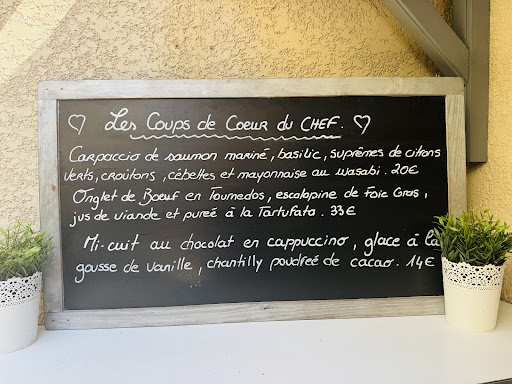 Les Coups de Coeur du CHEF.
Carpaccio de saumon mariné, basilic, suprêmes de citrons
verts, croûtons, cébettes et mayonnaise au wasabi. 20€
Onglet de Boeuf en Tournedos, escalapine de Foie Gras,
jus de viande et pureé à la Tartufata. 33€
Mi-cuit au chocolat en cappuccino, glace à la
gousse de vanille, chantilly poudreé de cacao. 14€